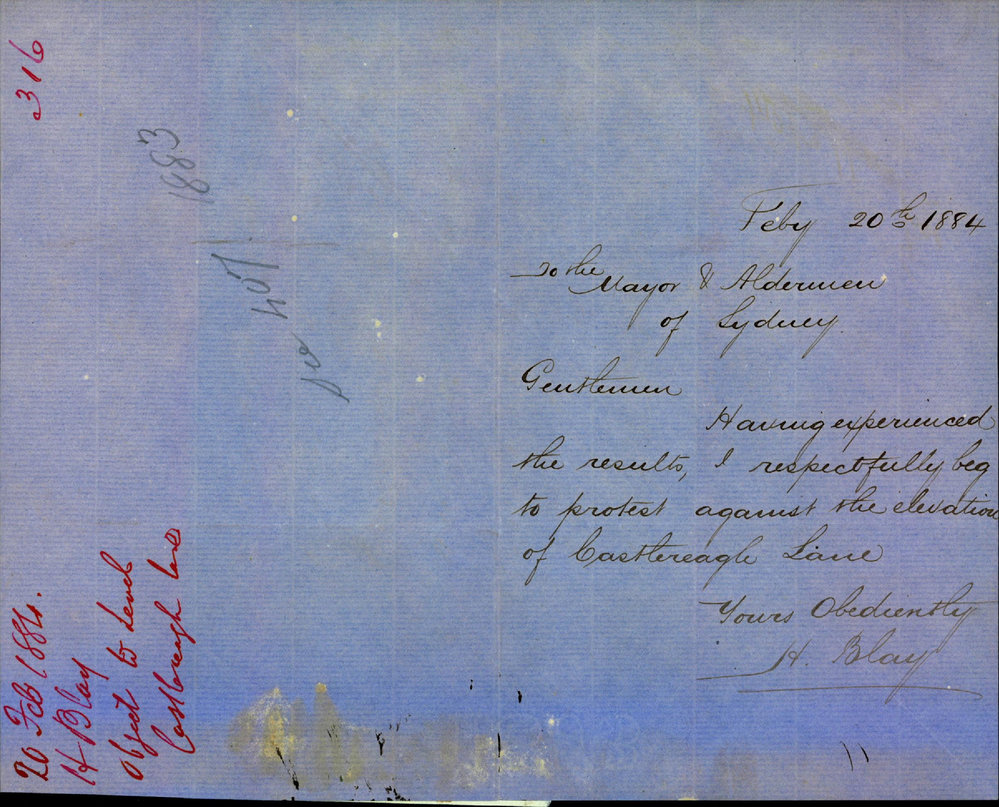 Feby 20th 1884
To the Mayor & Aldermen
of Sydney.
Gentlemen
Having experienced
the results, I respectfully beg
to protest against the elevation
of Castlereagh Lane
Yours Obediently
H. Blay
316
1883
20 Feb 1884.
H Blay
Object to Level
Castlereagh Lane